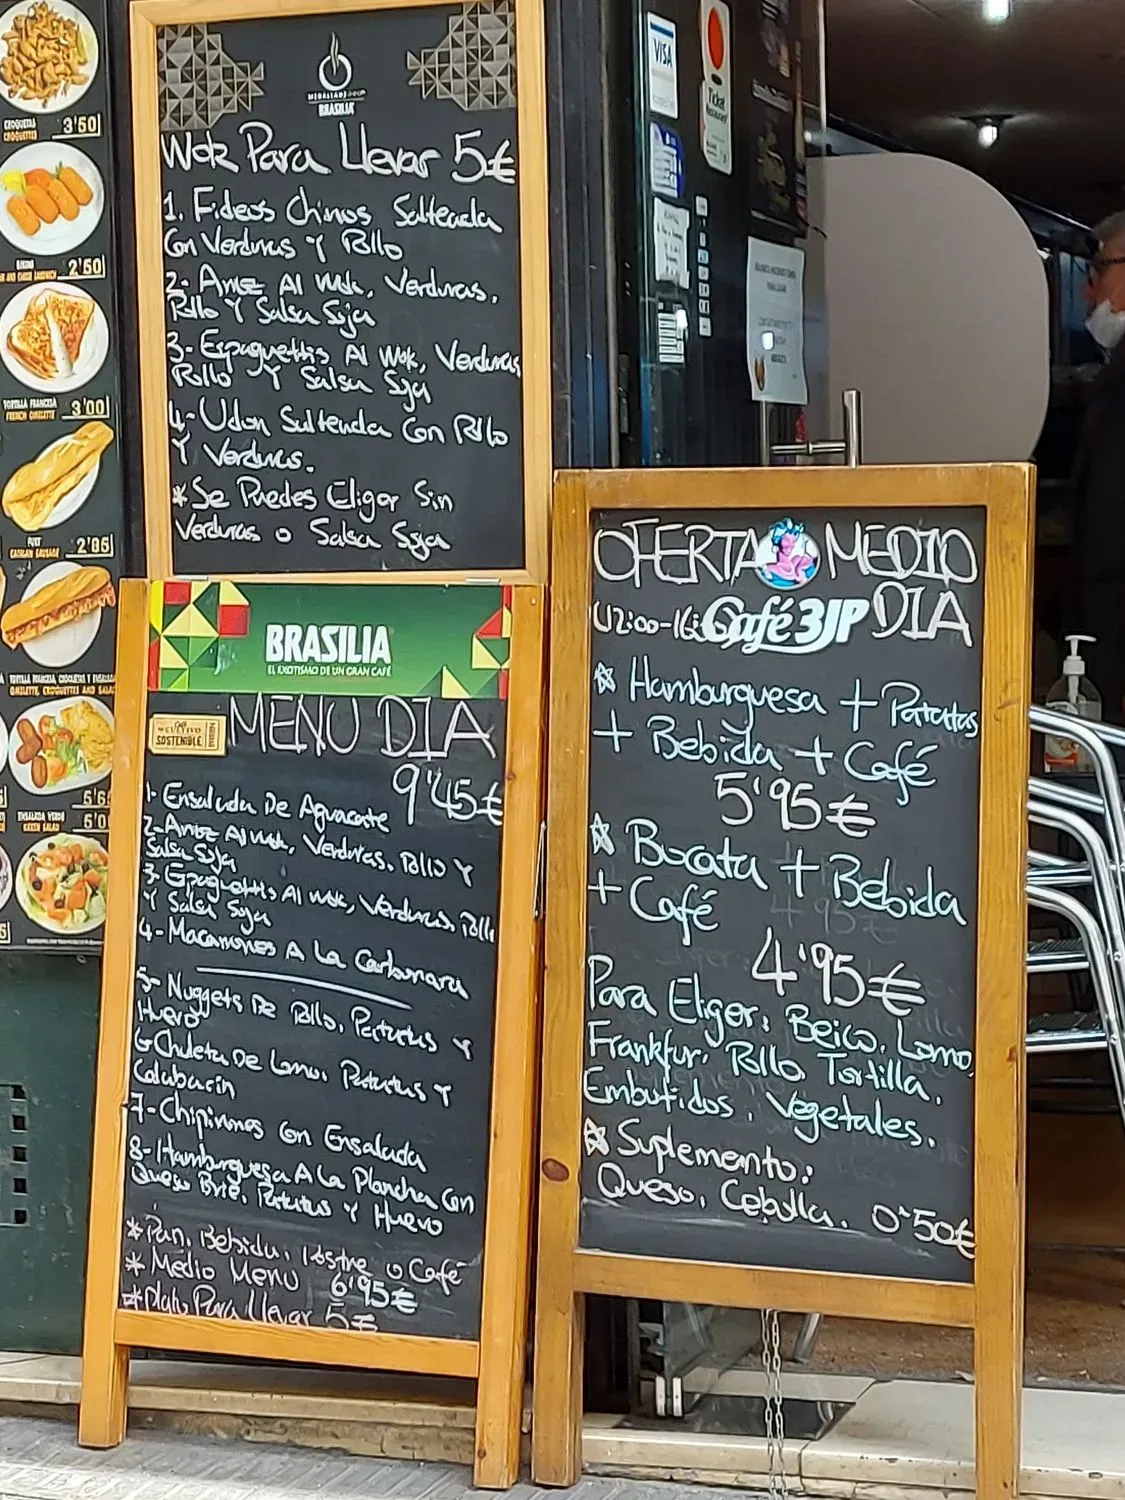 CROQUETAS
CROQUETTES
3'50
2'50
TORTILLA FRANCESA
FRENCH OMELETTE
3'00
FUET
CATALAN SAUSAGE
2'85
TORTILLA FRANCESA, CROQUETAS Y ENSALADA
OMELETTE, CROQUETTES AND SALAD
ENSALADA VERDE
GREEN SALAD
BRASILIA
Wok Para Llevar 5€
1. Fideos Chinos Salteada
Con Verduras Y Pollo
2- Arroz Al Wok, Verduras,
Pollo Y Salsa Soja
3- Espaguettis Al Wok, Verduras
Pollo Y Salsa Soja
4- Udon Salteada Con Pollo
Y Verduras.
*Se Puedes Eliger Sin
Verduras o Salsa Soja
BRASILIA
EL EXOTISMO DE UN GRAN CAFÉ
Café
de CULTIVO
SOSTENIBLE
MENU DIA
9'45€
1- Ensalada De Aguacate
2- Arroz Al Wok, Verduras, Pollo Y
Salsa Soja
3- Espaguettis Al Wok, Verduras, Pollo
Y Salsa Soja
4- Macarrones A La Carbonara
5- Nuggets De Pollo, Patatas Y
Huevo
6 Chuleta De Lomo, Patatas Y
Calabacin
7- Chipirones Con Ensalada
8- Hamburguesa A La Plancha Con
Queso Brie, Patatas Y Huevo
*Pan, Bebida, Postre o Café
* Medio Menu 6'95€
*Plato Para Llevar 5€
VISA
Ticket
Restaurant
OFERTA MEDIO
12:00-16: Café 3JP DIA
☆ Hamburguesa + Patatas
+ Bebida + Café
5'95€
☆ Bocata + Bebida
+ Café
4'95€
Para Eliger: Beico, Lomo,
Frankfur, Pollo, Tortilla,
Embutidos, Vegetales.
☆ Suplemento:
Queso, Cebolla. 0'50€